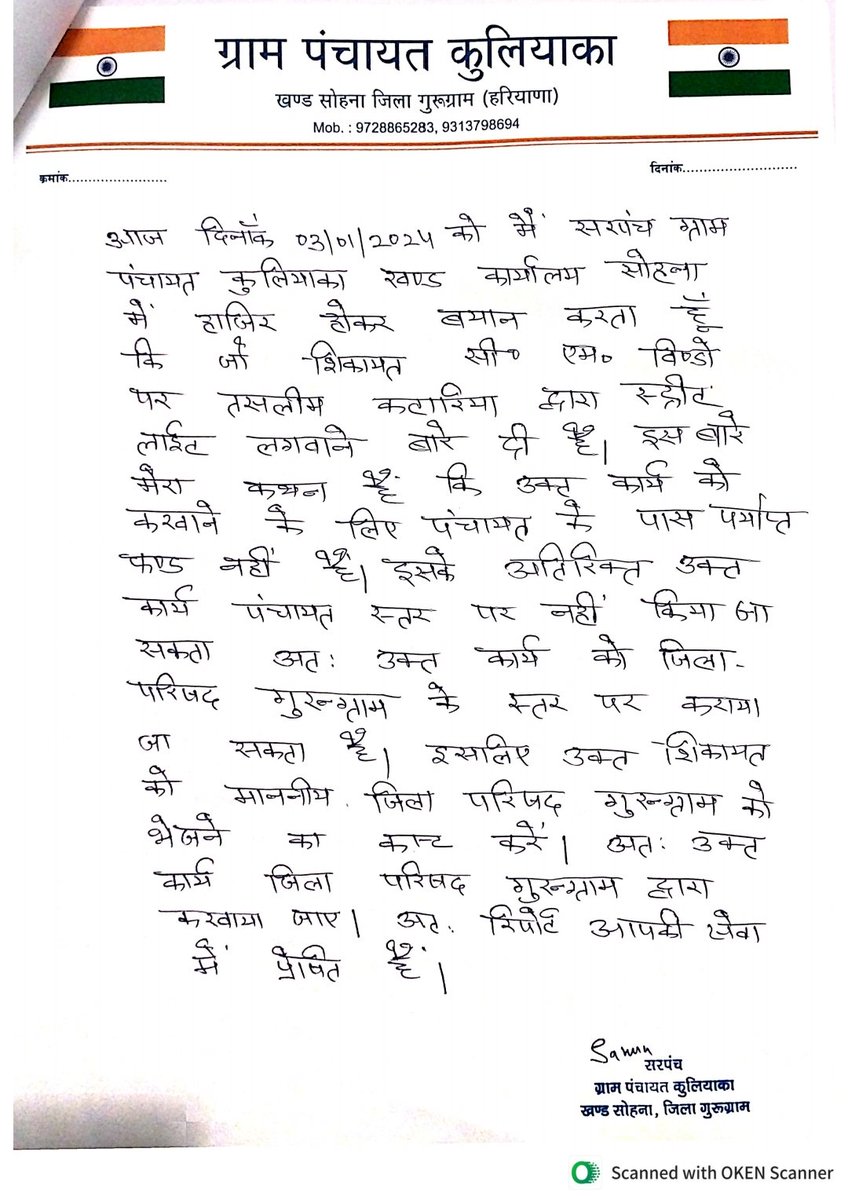 ग्राम पंचायत कुलियाका
खण्ड सोहना जिला गुरूग्राम (हरियाणा)
Mob. : 9728865283, 9313798694
क्रमांक.........................
दिनांक.............................
आज दिनाँक 03/01/2024 को मैं सरपंच ग्राम
पंचायत कुलियाका खण्ड कार्यालय सोहना
में हाजिर होकर बयान करता हूँ
कि जो शिकायत सी० एम० विण्डो
पर तसलीम कटारिया द्वारा स्ट्रीट
लाईट लगवाने बारे दी है। इस बारे
मेरा कथन है कि उक्त कार्य को
करवाने के लिए पंचायत के पास पर्याप्त
फण्ड नहीं है। इसके अतिरिक्त उक्त
कार्य पंचायत स्तर पर नहीं किया जा
सकता अत: उक्त कार्य को जिला-
परिषद गुरुग्राम के स्तर पर कराया
जा सकता है। इसलिए उक्त शिकायत
को माननीय जिला परिषद गुरुग्राम को
भेजने का कष्ट करें। अत: उक्त
कार्य जिला परिषद गुरुग्राम द्वारा
करवाया जाए। अत: रिपोर्ट आपकी सेवा
में प्रेषित हैं।
सरपंच
ग्राम पंचायत कुलियाका
खण्ड सोहना, जिला गुरूग्राम
Scanned with OKEN Scanner